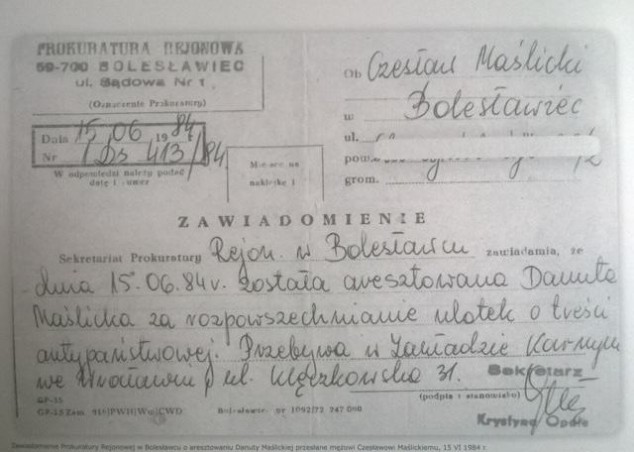 PROKURATURA REJONOWA
59-700 BOLESŁAWIEC
ul. Sądowa Nr 1
(Oznaczenie Prokuratury)
Data 15 06 1984
Nr 1 Ds 413/84
W odpowiedzi należy podać
datę i numer
Miejsce na
naklejkę
Ob Czesław Maślicki
w Bolesławiec
ul.
pow.
grom.
ZAWIADOMIENIE
Sekretariat Prokuratury Rejon. w Bolesławcu zawiadamia, że
dnia 15.06.84 r. została aresztowana Danuta
Maślicka za rozpowszechnianie ulotek o treści
antypaństwowej. Przebywa w Zakładzie Karnym
we Wrocławiu ul. Kleczkowska 31.
Sekretarz
(podpis i stanowisko)
Krystyna Opala
GP-25
Zawiadomienie Prokuratury Rejonowej w Bolesławcu o aresztowaniu Danuty Maślickiej przesłane mężowi Czesławowi Maślickiemu, 15 VI 1984 r.